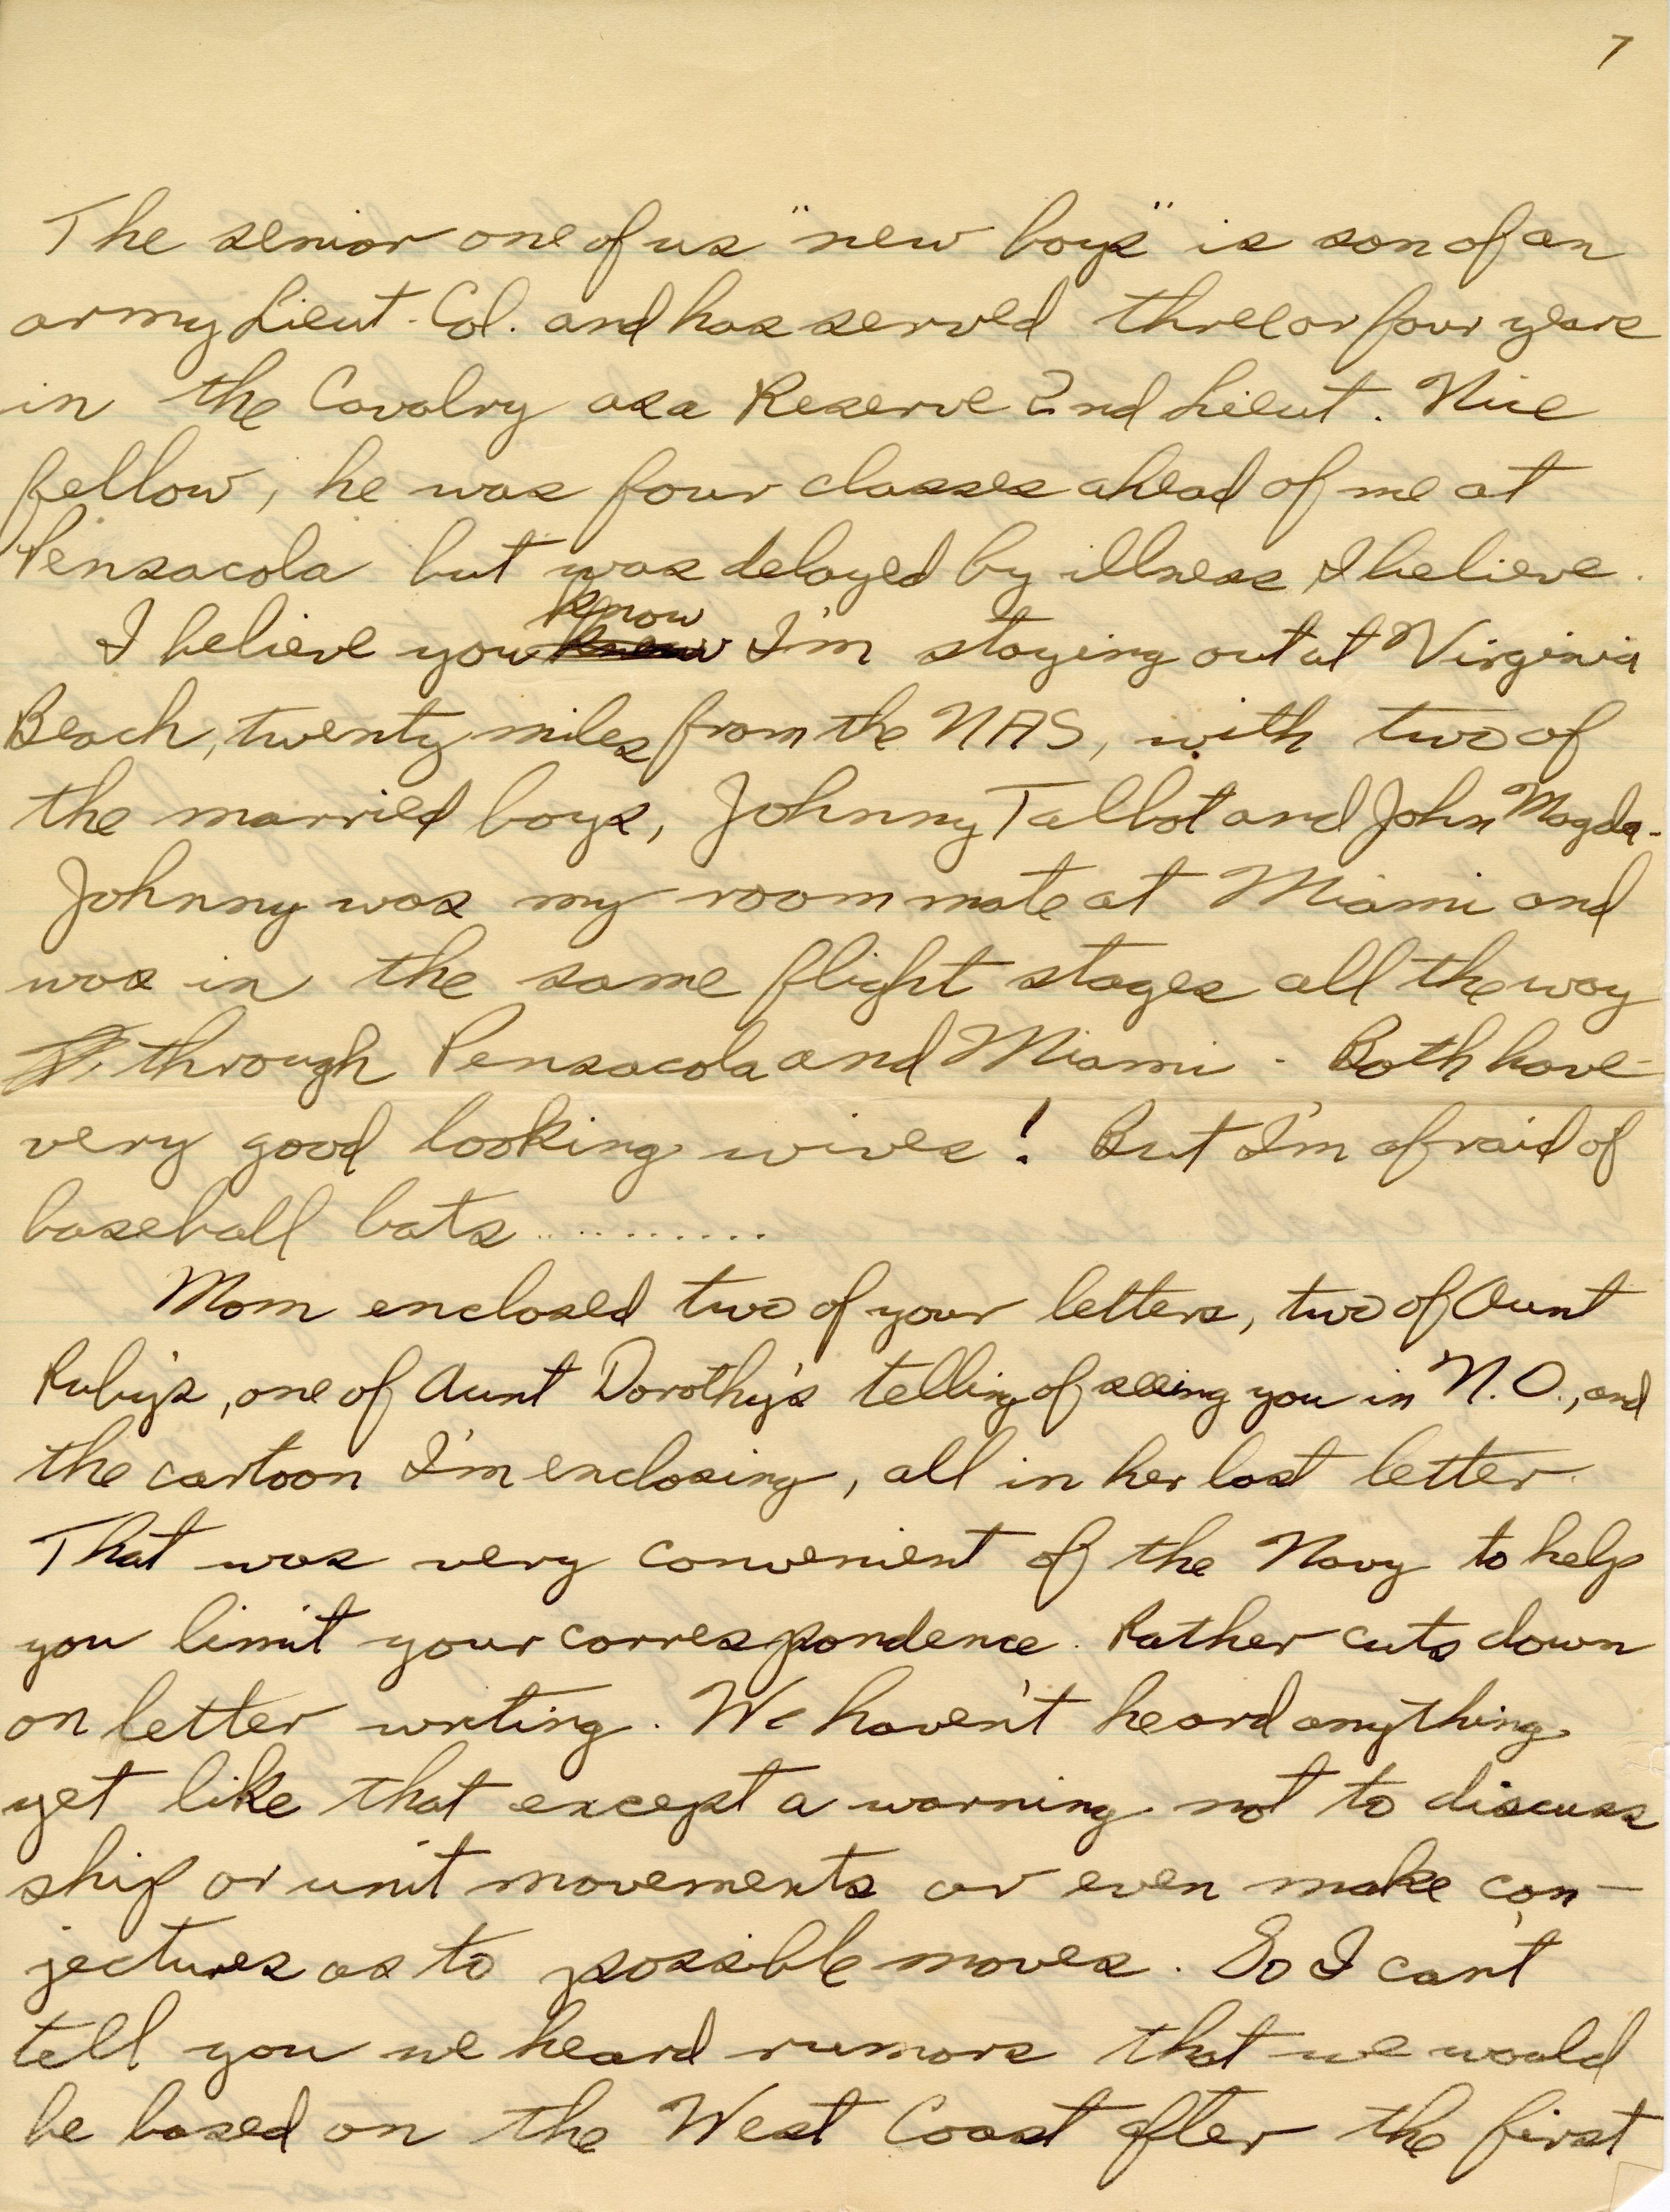 7
The senior one of us "new boys" is son of an
army Lieut. Col. and has served three or four years
in the Cavalry as a Reserve 2nd Lieut. Nice
fellow, he was four classes ahead of me at
Pensacola but was delayed by illness I believe.
know
I believe you knew I'm staying out at Virginia
Beach, twenty miles from the NAS, with two of
the married boys, Johnny Talbot and John Magda.
Johnny was my room mate at Miami and
was in the same flight stages all the way
through Pensacola and Miami. Both have
very good looking wives! But I'm afraid of
baseball bats...........
Mom enclosed two of your letters, two of Aunt
Ruby's, one of Aunt Dorothy's telling of seeing you in N.O., and
the cartoon I'm enclosing, all in her last letter.
That was very convenient of the Navy to help
you limit your correspondence. Rather cuts down
on letter writing. We haven't heard anything
yet like that except a warning not to discuss
ship or unit movements or even make con-
jectures as to possible moves. So I can't
tell you we heard rumors that we would
be based on the West Coast after the first